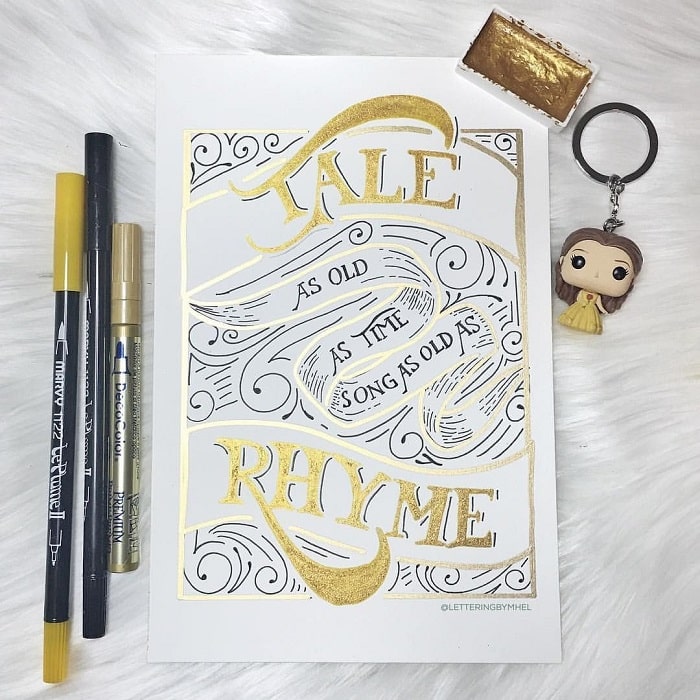 TALE
AS OLD
AS TIME
SONG AS OLD AS
RHYME
@LETTERINGBYMHEL
MARVY 1122 LePlume II
DecoColor
PREMIUM